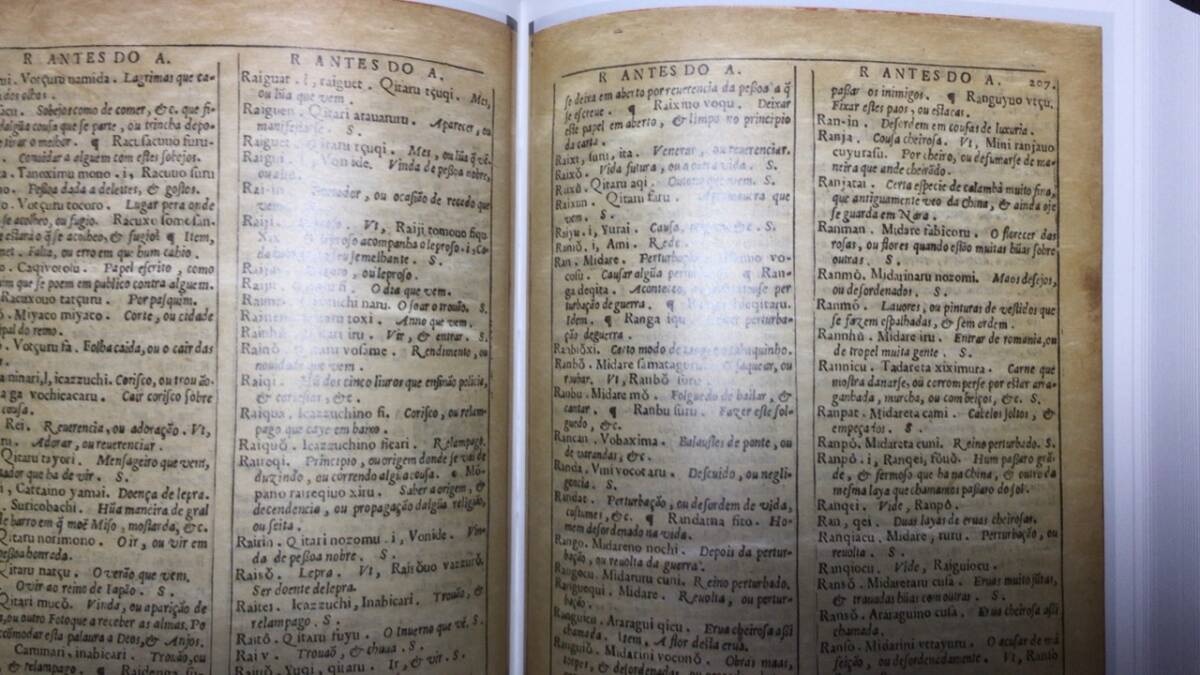 R ANTES DO A.
ui. Votçuru namida. Lagrimas que ca-
dos olhos.
Sobejos como de comer, &c. que fi-
dalgũa cousa que se parte, ou trincha depo-
tirar o melhor. ¶ Racusacuo furu-
Conuidar a alguem com estes sobejos.
ta. Taneximu mono. i, Racuuo suru
Pessoa dada a deleites, & gostos.
o. Votçuru tocoro. Lugar pera onde
se acolheo, ou fugio.
estarão q̃ se acolheo, & fugio! ¶ Item,
Falta, ou erro em que hum cahio.
Papel escrito, como
um que se poem em publico contra alguem.
Racuxouo tatçuru. Por pasquim.
ô. Miyaco miyaco. Corte, ou cidade
ipal do reino.
ô. Votçuru fa. Folha caida, ou o cair das
aminari, l, icazzuchi. Corisco, ou trouão.
ga vochicacaru. Cair corisco sobre
cousa.
Rei. Reuerencia, ou adoração. Vt,
ru. Adorar, ou reuerenciar.
Qitaru tayori. Mensageiro que vem,
ador que ha de vir. S.
i, Cattaino yamai. Doença de lepra.
Suricobachi. Hũa maneira de gral
de barro em q̃ moẽ Miso, mostarda, &c.
Qitaru norimono. O ir, ou vir em
pessoa honrada.
Qitaru natçu. O verão que vem.
O vir ao reino de Iapão. S.
Qitari mucŏ. Vinda, ou aparição de
, ou outro Fotoque a receber as almas. Po
comodar esta palaura a Deos, & Anjos.
Caminari, inabicari. Trouão, ou
& relampago. ¶
R ANTES DO A.
Raiguat. l, raiguet. Qitaru tçuqi. Mes,
ou lũa que vem.
Raiguen. Qitari arauaruru. Aparecer, ou
manifestarse. S.
Raiguet. Qitaru tçuqi. Mes, ou lũa q̃ vẽ.
Raigui. l, Vonide. Vinda de pessoa nobre,
ou alta.
Rai-in. ou ocasião de recedo que
vem. S.
Raiji. Vt, Raiji tomouo fiqu.
leproso acompanha o leproso. i,
seu semelhante. S.
ou leproso.
fi. O dia que vem.
naru. O soar o trouão. S.
Rainen. Qitaru toxi. Anno que vem.
Rainhŭ. Qitari iru. Vir, & entrar. S.
Rainŏ. vosame. Rendimento, ou
nouidade que vem.
Raiqi. Hũ dos cinco liuros que ensinão policia,
& cortesias, &c.
Raiqua. Icazzuchino fi. Corisco, ou relam-
pago que caye em baixo.
Raiquŏ. Icazzuchino ficari. Relampago.
Raireqi. Principio, ou origem donde se vai de
duzindo, ou correndo algũa cousa. ¶ Mõ-
pano raireqiuo xiru. Saber a origem, &
decendencia, ou propagação dalgũa religião,
ou seita.
Rairin. Qitari nozomu. i, Vonide. Vin-
da de pessoa nobre. S.
Raisŏ. Lepra. Vt, Raisŏuo vazzurŏ.
Ser doente de lepra.
Raitei. Icazzuchi, Inabicari. Trouão, &
relampago. S.
Raitô. Qitaru fuyu. O inuerno que vẽ. S.
Rai v. Trouão, & chuua. S.
Yuqi, qitaru. Ir, & vir. S.
R ANTES DO A.
se deixa em aberto por reuerencia da pessoa a q̃
se escreue. ¶ Raixmo voqu. Deixar
este papel em aberto, & limpo no principio
da carta.
Raixi, suru, ita. Venerar, ou reuerenciar.
Raixŏ. Vida futura, ou a outra vida. S.
Raxŭ. Qitaru aqi. Outono que vem. S.
Raixun. Qitaru faru. A primauera que
vem. S.
Raiyu. i, Yurai. Causa, &c. S.
Raniŏ. i, Ami. Rede.
Ran. Midare. Perturbação.
cosu. Causar algũa ¶ Ran-
ga deqita.
turbação de guerra. ¶
Idem. ¶ Ranga iqu.
ção de guerra.
Ranbiŏxi. Certo modo de
Ranbŏ. Midare samatagueru. O saquear, ou
roubar. Vt, Ranbŏ suru.
Ranbu. Midare mŏ. Folguedo de bailar, &
cantar. ¶ Ranbu suru. Fazer este fol-
guedo, &c.
Rancan. Vobaxima. Balaustes de ponte, ou
de varandas, &c.
Randa. Descuido, ou negli-
gencia. S.
Randat. Perturbação, ou desordem de vida,
custumes, &c. ¶ Randatna fito. Ho-
mem desordenado na vida.
Rango. Midareno nochi. Depois da pertur-
bação, ou reuolta da guerra.
Rangocu. Midaruru cuni. Reino perturbado.
Ranguequi. Midare. Reuolta, ou pertur-
bação.
Ranguicu. Araragui qicu. Erua cheirosa assi
chamada. Item, A flor desta erua.
Ranguiŏ. Midarini voconŏ. Obras maas,
torpes, & desordenadas.
R ANTES DO A. 207.
passar os inimigos. ¶ Ranguyuo vtçu.
Fixar estes paos, ou estacas.
Ran-in. Desordem em cousas de luxuria.
Ranja. Cousa cheirosa. Vt, Mini ranjauo
cuyurasu. Por cheiro, ou defumarse de ma-
neira que ande cheirãdo.
Ranjatai. Certa especie de calambâ muito fina,
que antiguamente veo da China, & ainda oje
se guarda em Nara.
Ranman. Midare fabicoru. O florecer das
rosas, ou flores quando estão muitas hũas sobre
outras. S.
Ranmŏ. Midarinaru nozomi. Maos desejos,
ou desordenados. S.
Ranmŏ. Lauores, ou pinturas de vestidos que
se fazem espalhadas, & sem ordem.
Rannhŭ. Midare iru. Entrar de romania, ou
de tropel muita gente. S.
Rannicu. Tadareta xiximura. Carne que
mostra danarse, ou corromperse por estar ama-
ganhada, murcha, ou com beiços, &c. S.
Ranpat. Midareta cami. Cabelos soltos, &
empeçados. S.
Ranpŏ. Midareta cuni. Reino perturbado. S.
Ranpŏ. i, Ranqei, fôuô. Hum passaro grã-
de, & fermoso que ha na China, & outro da
mesma laya que chamamos passaro do sol.
Ranqei. Vide, Ranpŏ.
Ran, qei. Duas layas de eruas cheirosas.
Ranqiacu. Midare, ruru. Perturbação, ou
reuolta. S.
Ranqiocu. Vide, Raiguiocu.
Ransŏ. Midaretaru cusa. Eruas muito juntas,
& trauadas hũas com outras. S.
Ransŏ. Araraguino cusa. Erua cheirosa assi
chamada.
Ransŏ. Midarini vttayuru. O acusar de má
feição, ou desordenadamente. Vt, Ransŏ